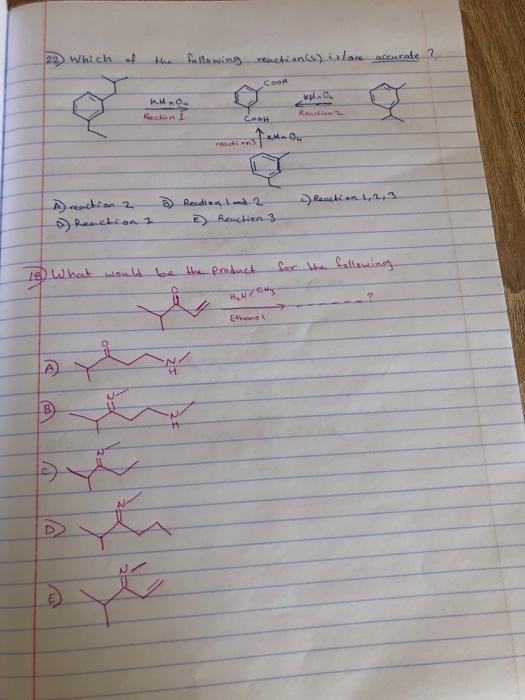 22) Which of the following reaction(s) is/are accurate ?
COOH
KMnO4
KMnO4
Reaction 1
Reaction 2
COOH
reaction3
KMnO4
A) reaction 2 B) Reaction 1 and 2 C) Reaction 1, 2, 3
D) Reaction 1 E) Reaction 3
18) What would be the product for the following
O
H2N/CH3
?
Ethanol
O
A)
N
H
N
B)
N
H
N
C)
N
D)
N
E)